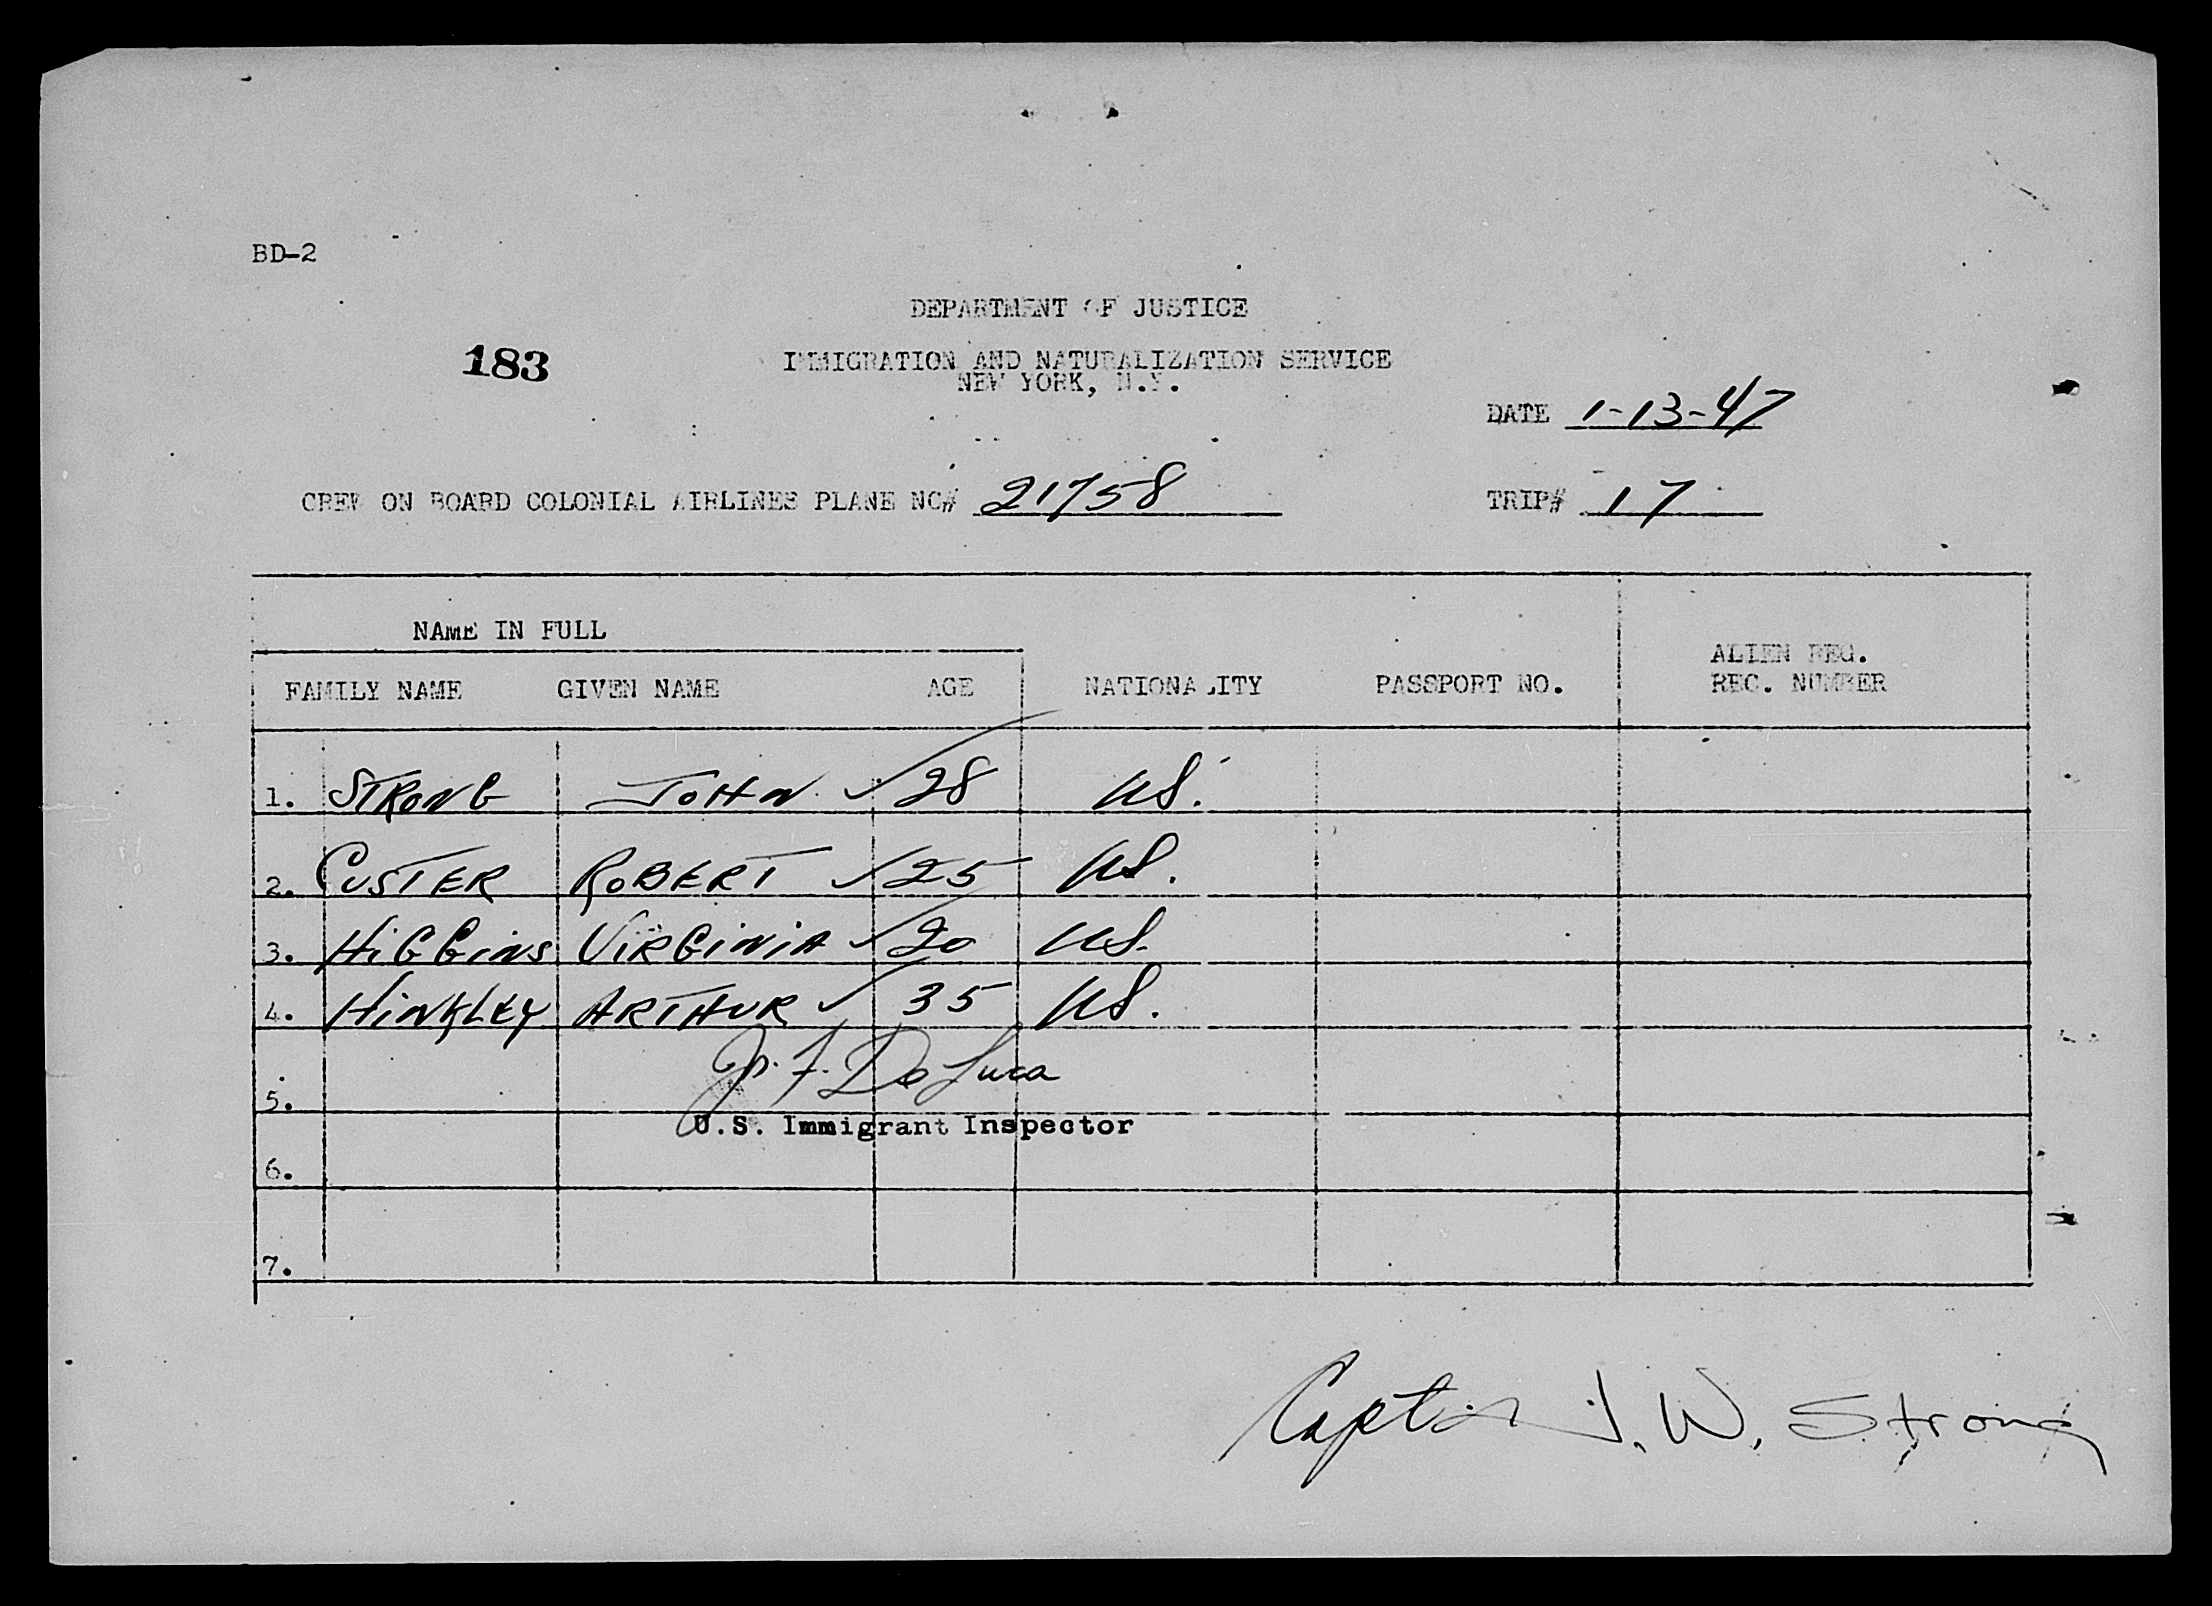 BD-2
DEPARTMENT OF JUSTICE
183
IMMIGRATION AND NATURALIZATION SERVICE
NEW YORK, N.Y.
DATE 1-13-47
CREW ON BOARD COLONIAL AIRLINES PLANE NC# 21758 TRIP# 17
NAME IN FULL
FAMILY NAME GIVEN NAME AGE NATIONALITY PASSPORT NO. ALIEN REG.
REC. NUMBER
1. STRONG JOHN ✓ 28 US.
2. CUSTER ROBERT ✓ 25 US.
3. HIGGINS VIRGINIA ✓ 20 US.
4. HINKLEY ARTHUR ✓ 35 US.
F. De Luca
5.
U.S. Immigrant Inspector
6.
7.
Captain J. W. Strong